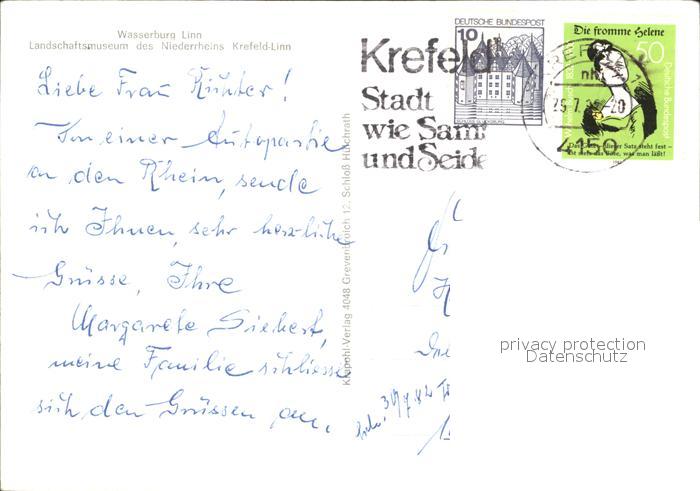 Wasserburg Linn
Landschaftsmuseum des Niederrheins Krefeld-Linn
Liebe Frau Künter!
Von einer Autopartie
an den Rhein, sende
ich Ihnen, sehr herzliche
Grüsse, Ihre
Margarete Siebert,
meine Familie schliesse
sich den Grüssen an.
Krapohl-Verlag 4048 Grevenbroich 12, Schloß Hülchrath
Krefeld
Stadt
wie Samt
und Seide
DEUTSCHE BUNDESPOST
10
SCHLOSS GLÜCKSBURG
Die fromme Helene
50
Deutsche Bundespost
Das Gute – dieser Satz steht fest –
ist stets das Böse, was man läßt!
30/7 82
privacy protection
Datenschutz